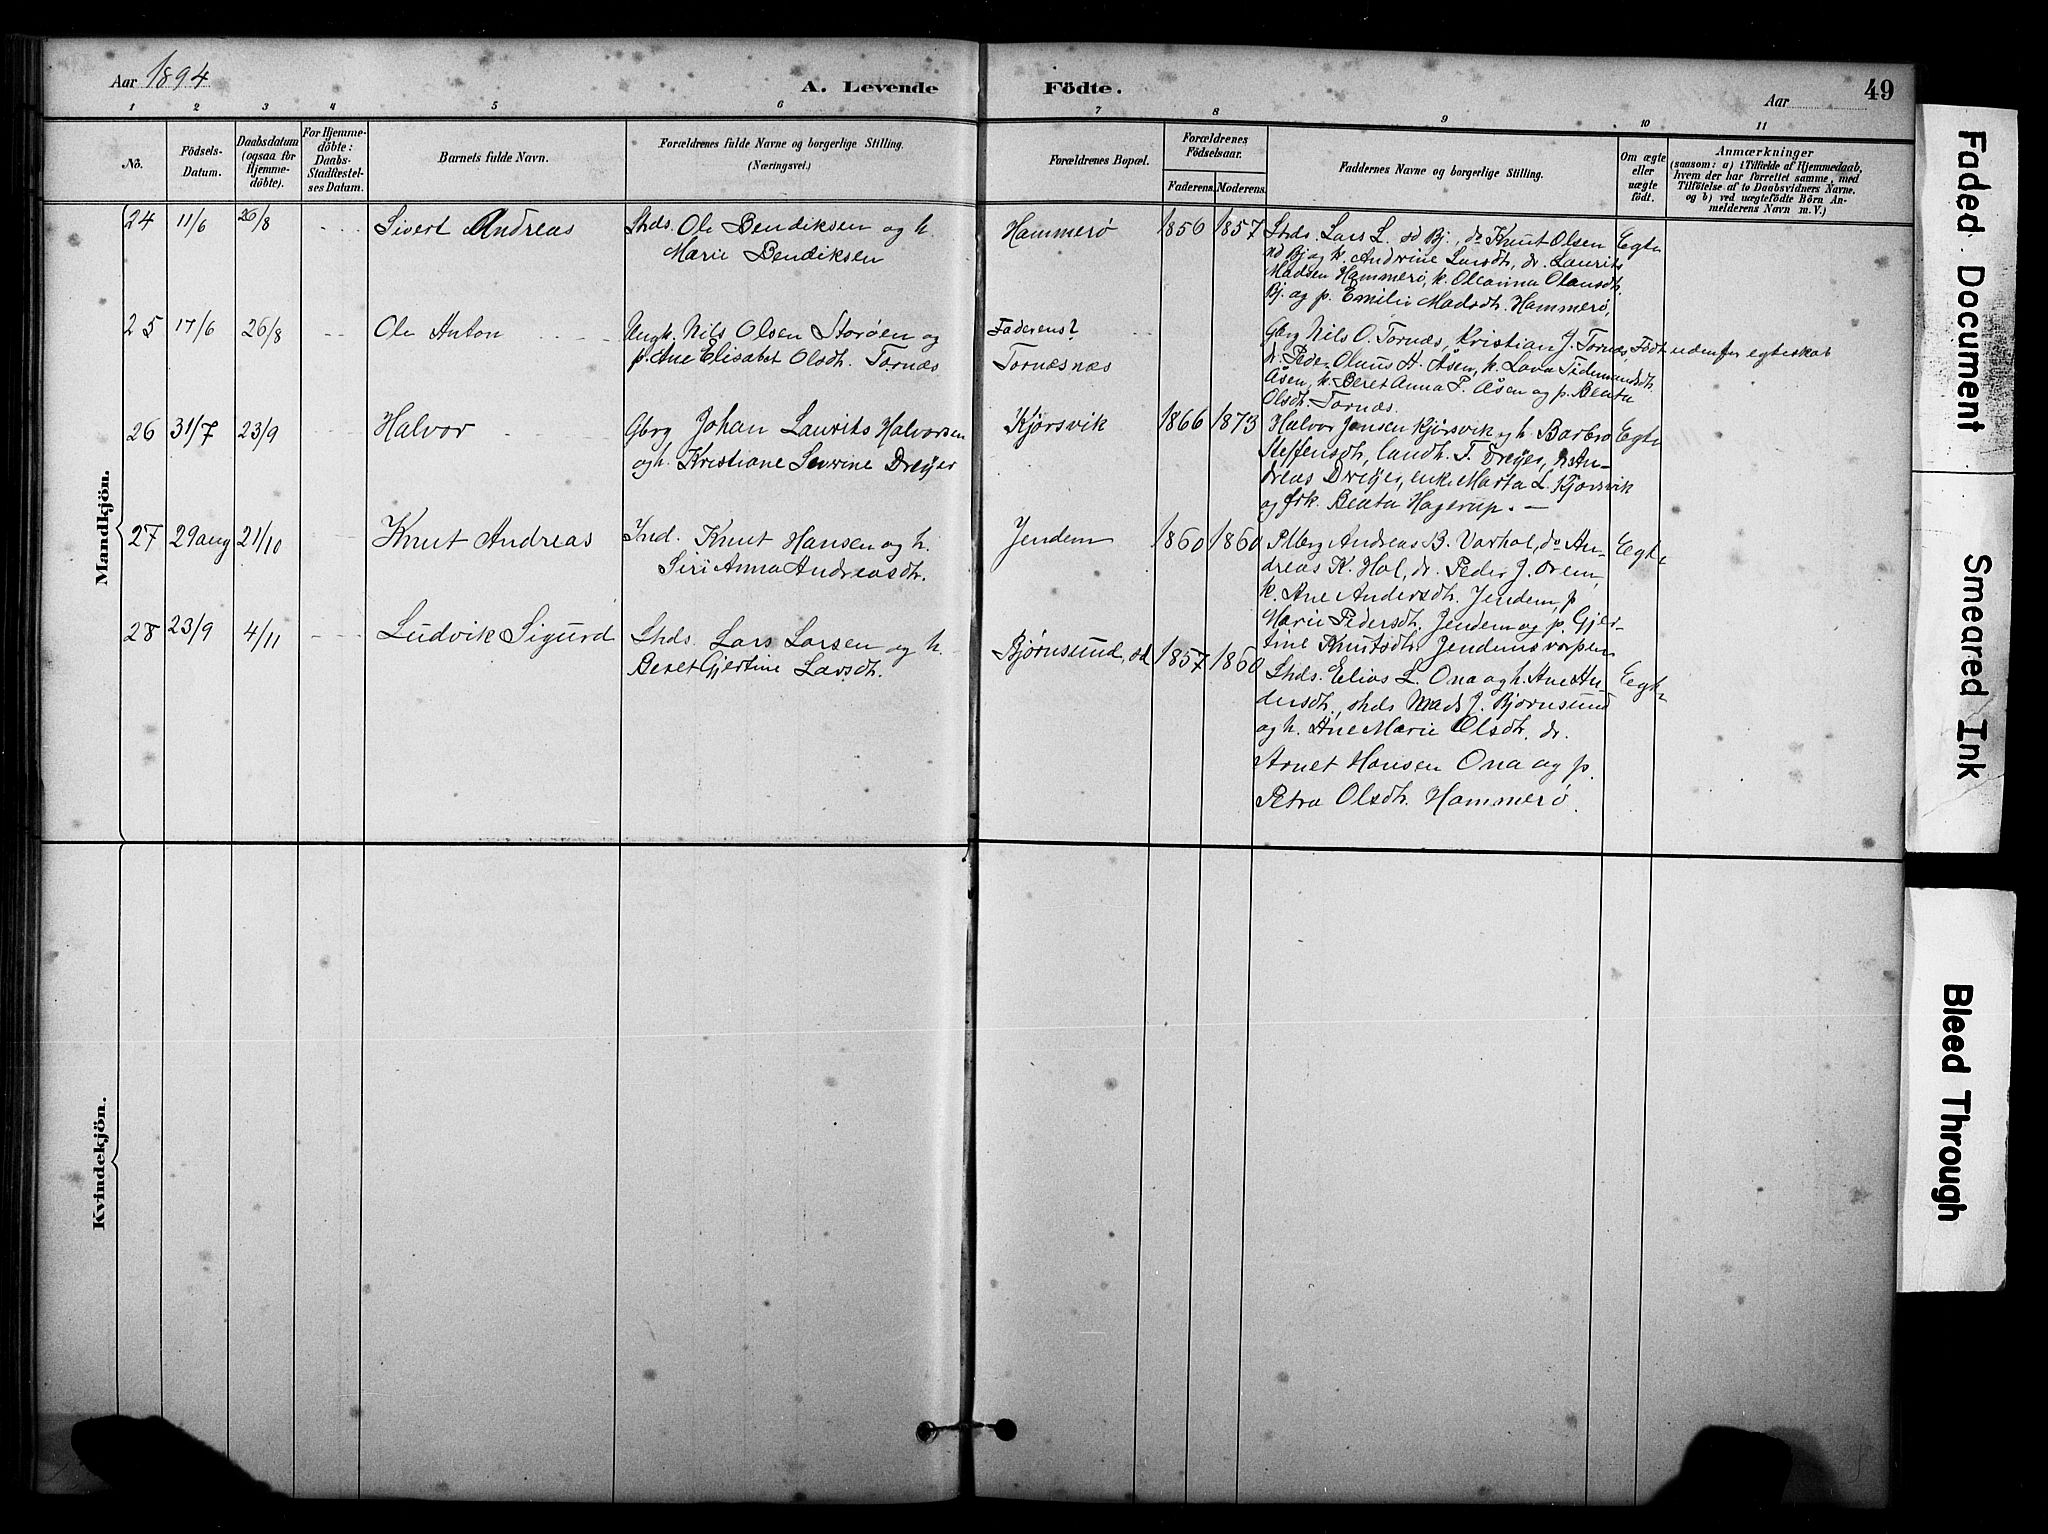 Aar 1894
A. Levende Födte.
Aar
49
1 2 3 4 5 6 7 8 9 10 11
No.
Födsels-
Datum.
Daabsdatum
(ogsaa for
Hjemme-
döbte).
For Hjemme-
döbte:
Daabs-
Stadfæstel-
ses Datum.
Barnets fulde Navn.
Forældrenes fulde Navne og borgerlige Stilling.
(Næringsvei.)
Forældrenes Bopæl.
Forældrenes
Födselsaar.
Faderens. Moderens.
Faddernes Navne og borgerlige Stilling.
Om ægte
eller
uægte
födt.
Anmærkninger
(saasom: a) i Tilfælde af Hjemmedaab,
hvem der har forrettet samme, med
Tilföielse af to Daabsvidners Navne.
og b) ved uægtefödte Börn An-
melderens Navn m. V.)
Mandkjön.
24 11/6 26/8 Sivert Andreas
Strds. Ole Bendiksen og h.
Marie Bendiksen
Hammerø 1856 1857
Strds. Lars L. sd Bj., do Knut Olsen
sd Bj og k. Andrine Larsdtr, dr. Laurits
Madsen Hammerø, k. Oleanna Olausdtr.
Bj. og p. Emilie Madsdtr. Hammerø,
Egte
25 17/6 26/8 Ole Anton
Ungk. Nils Olsen Storøen og
p. Ane Elisabet Olsdtr. Tornæs
Faderens?
Tornesnæs
Gbrg Nils O. Tornæs, Kristian J. Tornæs
dr. Peder Olaus A. Åsen, k. Lava Tidemandsdtr.
Åsen, k. Beret Anna P. Åsen og p. Beata
Olsdtr. Tornæs.
Födt udenfor egteskab
26 31/7 23/9 Halvor
Gbrg Johan Laurits Halvorsen
og h. Kristiane Severine Dreyer
Kjørsvik 1866 1873
Halvor Jensen Kjørsvik og h. Barbro
Steffensdtr, landh. F. Dreyer, An-
dreas Dreyer, enke Marta L. Kjørsvik
og frk. Beata Hagerup. —
Egte
27 29 aug 21/10 Knut Andreas
Ind. Knut Hansen og h.
Siri Anna Andreasdtr.
Jendem 1860 1860
Plbrg Andreas B. Varhol, do An-
dreas K. Hol, dr. Peder J. Orem,
k. Ane Andersdtr. Jendem, p
Marie Pedersdtr. Jendem og p. Gjer-
tine Knutsdtr. Jendemsvorpen
Egte
28 23/9 4/11 Ludvik Sigurd
Strds. Lars Larsen og h.
Beret Gjertine Larsdtr.
Bjørnsund, sd 1857 1860
Strds. Elias L. Ona og h. Ane An-
dersdtr, strds Mads J. Bjørnsund
og h. Ane Marie Olsdtr. dr.
Arnet Hansen Ona og p.
Petra Olsdtr. Hammerø.
Egte
Kvindekjön.
Faded Document
Smeared Ink
Bleed Through